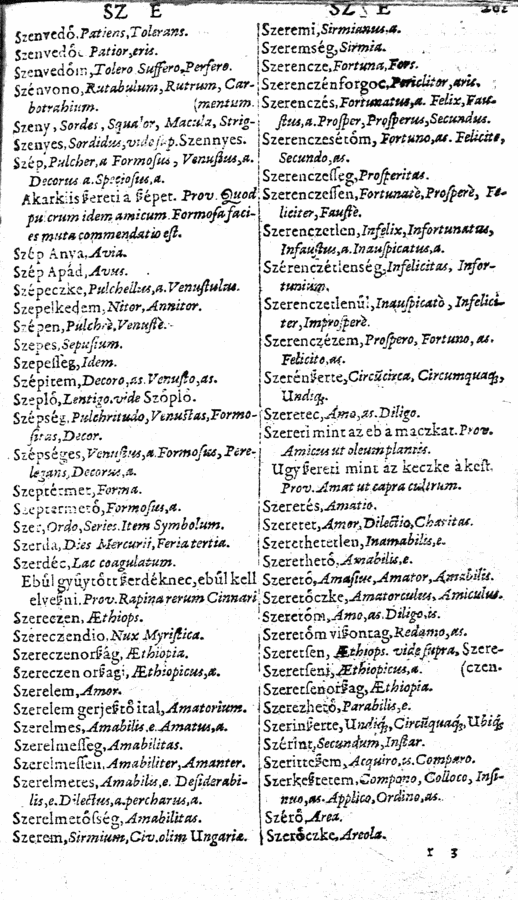 SZ E
Szenvedő. Patiens, Tolerans.
Szenvedőc Patior, eris.
Szenvedőm, Tolero Suffero, Perfero.
Szénvono, Rutabulum, Rutrum, Car-
botrahium. (mentum.
Szeny, Sordes, Squalor, Macula, Strig-
Szenyes, Sordidus, vide sup. Szennyes.
Szép, Pulcher, a Formosus, Venustus, a.
Decorus a. Speciosus, a.
Akarki is ßereti a ßépet. Prov. Quod
pulcrum idem amicum. Formosa faci-
es muta commendatio est.
Szép Anya, Avia.
Szép Apád, Avus.
Szépeczke, Pulchellus, a. Venustulus.
Szepelkedem, Nitor, Annitor.
Szépen, Pulchrè, Venustè.
Szepes, Sepusium.
Szepesseg, Idem.
Szépitem, Decoro, as. Venusto, as.
Szeplő, Lentigo. vide Szöplő.
Szépség, Pulchritudo, Venustas, Formo-
sitas, Decor.
Szépséges, Venustus, a. Formosus, Pere-
legans, Decorus, a.
Szeptérmet, Forma.
Szeptermetö, Formosus, a.
Szer, Ordo, Series. Item Symbolum.
Szerda, Dies Mercurii, Feria tertia.
Szerdéc, Lac coagulatum.
Ebül gyüytőtt ßerdéknec, ebül kell
elveßni. Prov. Rapina rerum Cinnari
Szereczen, Æthiops.
Szereczendio, Nux Myristica.
Szereczenorßág, Æthiopia.
Szereczen orßagi, Æthiopicus, a.
Szerelem, Amor.
Szerelem gerjeßtő ital, Amatorium.
Szerelmes, Amabilis, e. Amatus, a.
Szerelmesseg, Amabilitas.
Szerelmessen, Amabiliter, Amanter.
Szerelmetes, Amabilis, e. Desiderabi-
lis, e. Dilectus, a. percharus, a.
Szerelmetősség, Amabilitas.
Szerem, Sirmium, Civ. olim Ungariæ.
SZ E
Szeremi, Sirmianus, a.
Szeremség, Sirmia.
Szerencze, Fortuna, Fors.
Szerenczénforgoc, Periclitor, aris.
Szerenczés, Fortunatus, a. Felix, Fau-
stus, a. Prosper, Prosperus, Secundus.
Szerenczesétőm, Fortuno, as. Felicito,
Secundo, as.
Szerenczesseg, Prosperitas.
Szerenczessen, Fortunatè, Prosperè, Fe-
liciter, Faustè.
Szerenczetlen, Infelix, Infortunatus,
Infaustus, a. Inauspicatus, a.
Szérenczétlenség, Infelicitas, Infor-
tunium.
Szerenczetlenül, Inauspicatò, Infelici-
ter, Improsperè.
Szerenczézem, Prospero, Fortuno, as.
Felicito, as.
Szerénßerte, Circũcirca, Circumquaq;,
Undiq;.
Szeretec, Amo, as. Diligo.
Szereti mint az eb a maczkat. Prov.
Amicus ut oleum plantis.
Ugy ßereti mint az keczke a kést.
Prov. Amat ut capra cultrum.
Szeretés, Amatio.
Szeretet, Amor, Dilectio, Charitas.
Szerethetetlen, Inamabilis, e.
Szerethető, Amabilis, e.
Szerető, Amasius, Amator, Amabilis.
Szeretőczke, Amatorculus, Amiculus.
Szeretőm, Amo, as. Diligo, is.
Szeretőm vißontag, Redamo, as.
Szeretsen, Æthiops. vide supra, Szere-
Szeretseni, Æthiopicus, a. (czen.
Szeretsenorßag, Æthiopia.
Szerezhető, Parabilis, e.
Szerinßerte, Undiq;, Circũquaq;, Ubiq;
Szérint, Secundum, Instar.
Szerittetem, Acquiro, is. Comparo.
Szerkeßtetem, Compono, Colloco, Insi-
nuo, as. Applico, Ordino, as.
Szérő, Area.
Szerőczke, Areola.
r 3